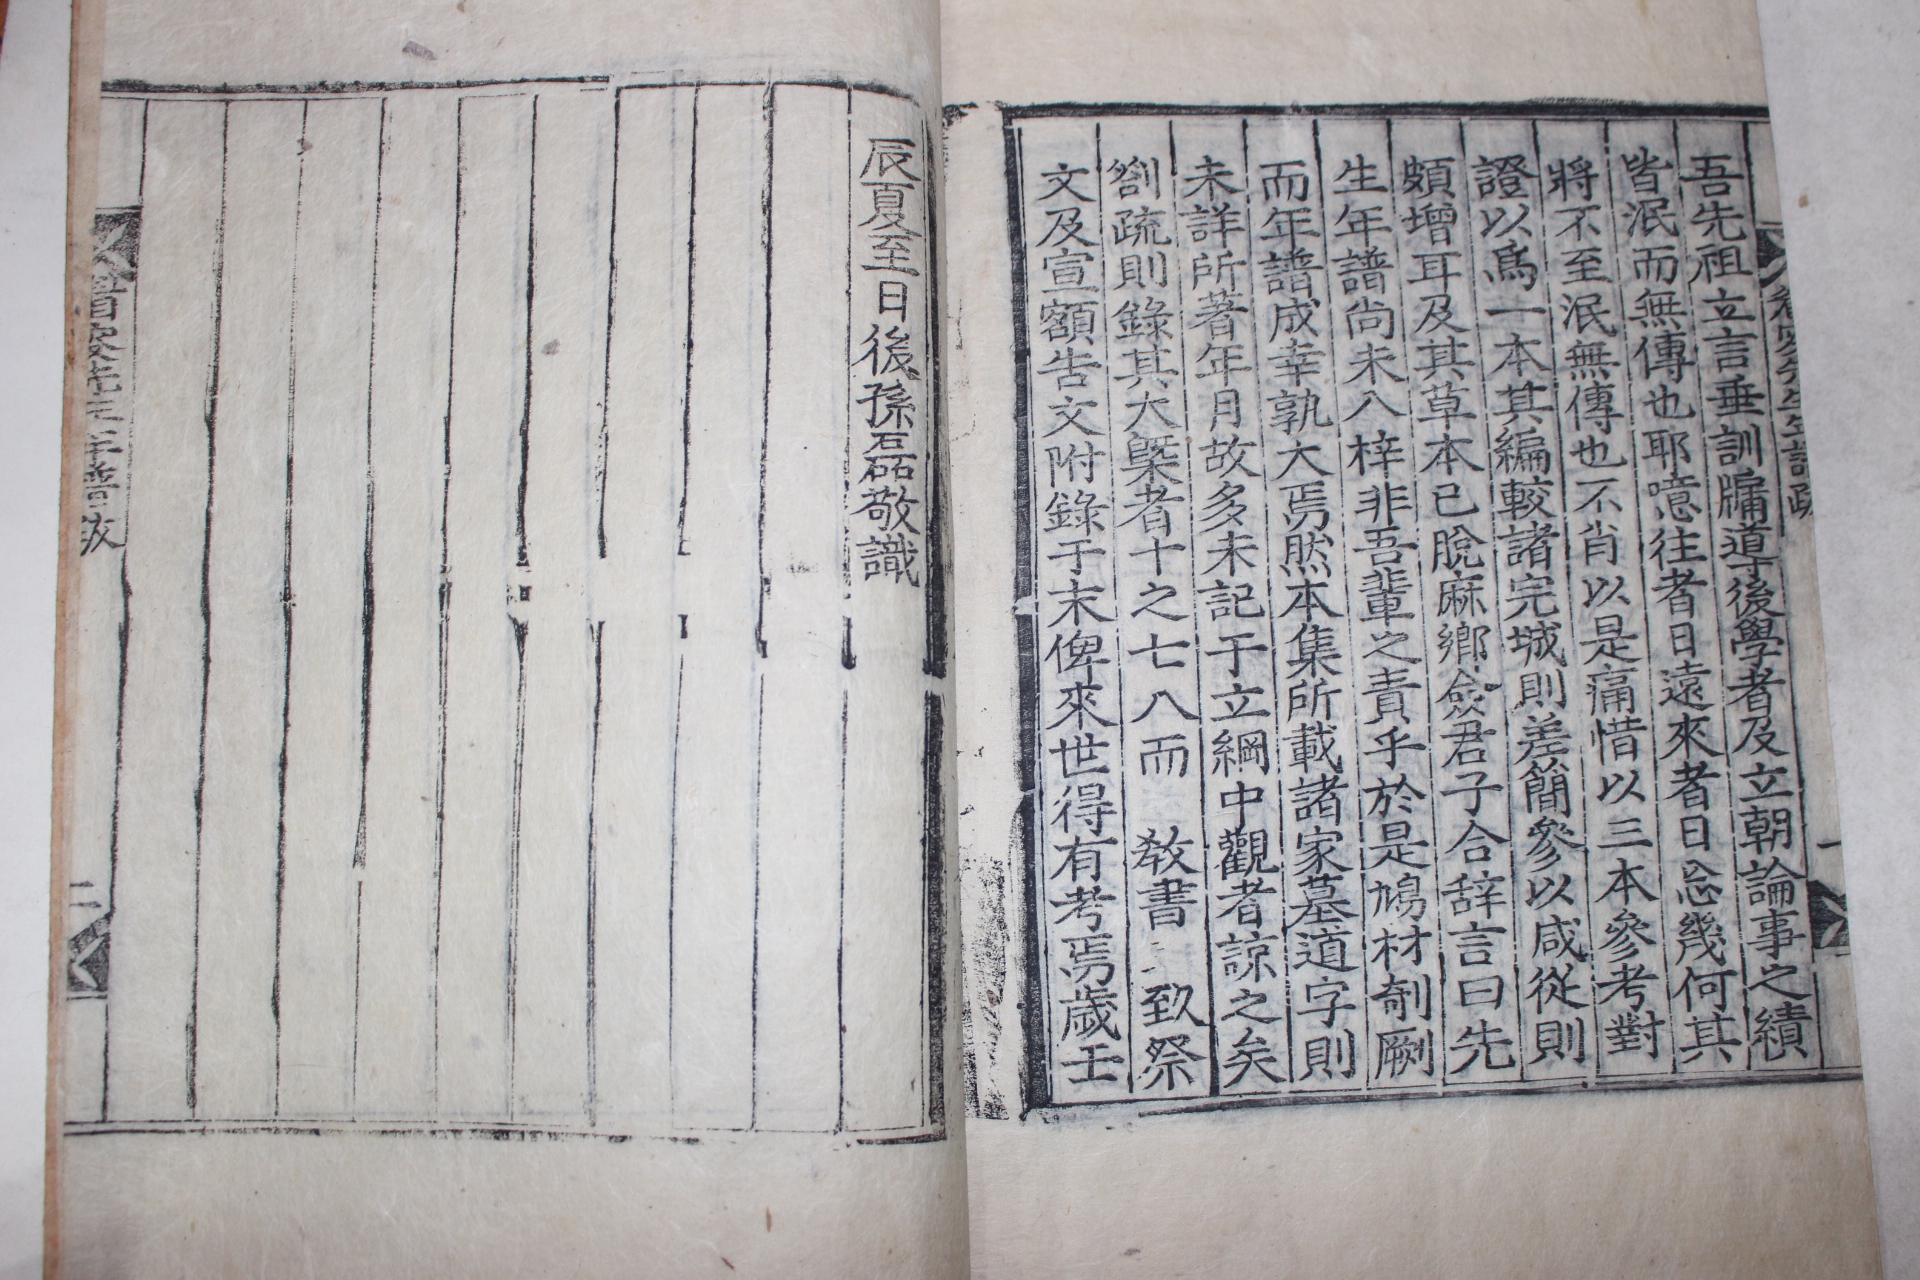 吾先祖立言垂訓牖導後學者及立朝論事之績
皆泯而無傳也耶噫往者日遠來者日忘幾何其
將不至泯無傳也不肖以是痛惜以三本參考對
證以爲一本其編較諸完城則差簡參以咸從則
頗增耳及其草本已脫麻鄉僉君子合辞言曰先
生年譜尙未入梓非吾輩之責乎於是鳩材剞劂
而年譜成幸孰大焉然本集所載諸家墓道字則
未詳所著年月故多未記于立綱中觀者諒之矣
劄疏則錄其大槩者十之七八而 敎書 致祭
文及宣額告文附錄于末俾來世得有考焉歲壬
辰夏至日後孫磊敬識
先生年譜跋
二